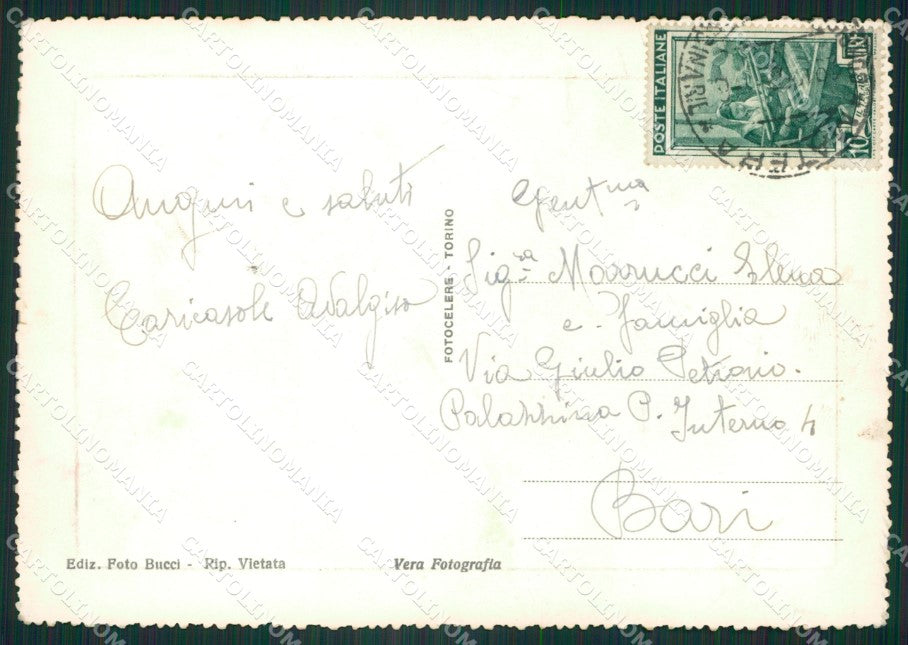 Auguri e saluti
Caricasole Adalgisa
FOTOCELERE - TORINO
Gent.ma
Sig.ra Marrucci Elena
e. Famiglia
Via Giulio Petroni.
Palazzina P. Interno 4
Bari
Ediz. Foto Bucci - Rip. Vietata
Vera Fotografia
POSTE ITALIANE
MATERA
CARTOLINOMANIA